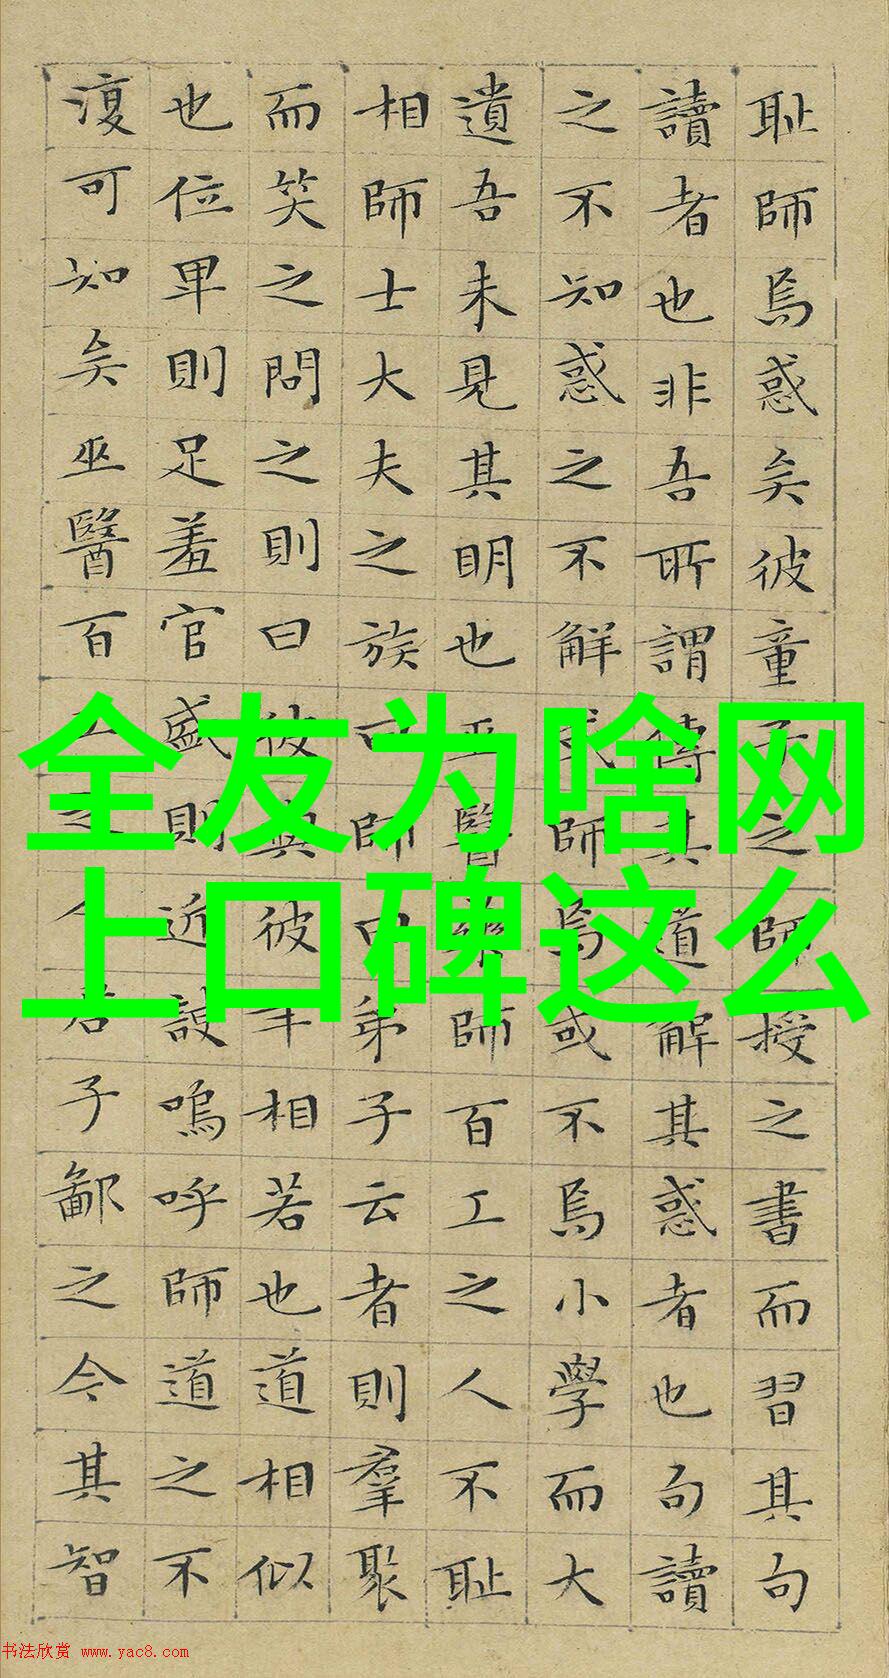 耻師焉惑矣彼童子之師授之書而習其句
讀者也非吾所謂傳其道解其惑者也句讀
之不知惑之不解或師焉或不焉小學而大
遺吾未見其明也巫醫樂師百工之人不耻
相師士大夫之族曰師曰弟子云者則羣聚
而笑之問之則曰彼與彼年相若也道相似
也位卑則足羞官盛則近諛嗚呼師道之不
復可知矣巫醫百工之人君子鄙之今其智
全友为啥网
上口碑这么
书法欣赏 www.yac8.com